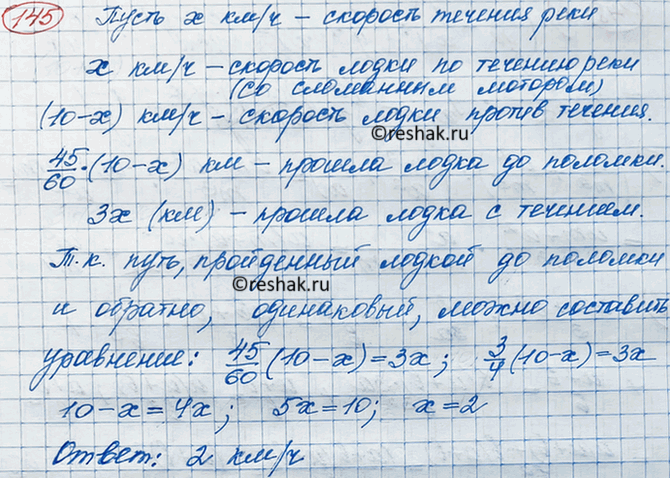 145 Пусть х км/ч – скорость течения реки
х км/ч – скорость лодки по течению реки
(со сломанным мотором)
(10-х) км/ч – скорость лодки против течения.
©reshak.ru
45/60 · (10-х) км – прошла лодка до поломки.
3х (км) – прошла лодка с течением.
Т.к. путь, пройденный лодкой до поломки
©reshak.ru
и обратно, одинаковый, можно составить
уравнение: 45/60 (10-х) = 3х; 3/4 (10-х) = 3х
10-х = 4х; 5х = 10; х = 2
Ответ: 2 км/ч